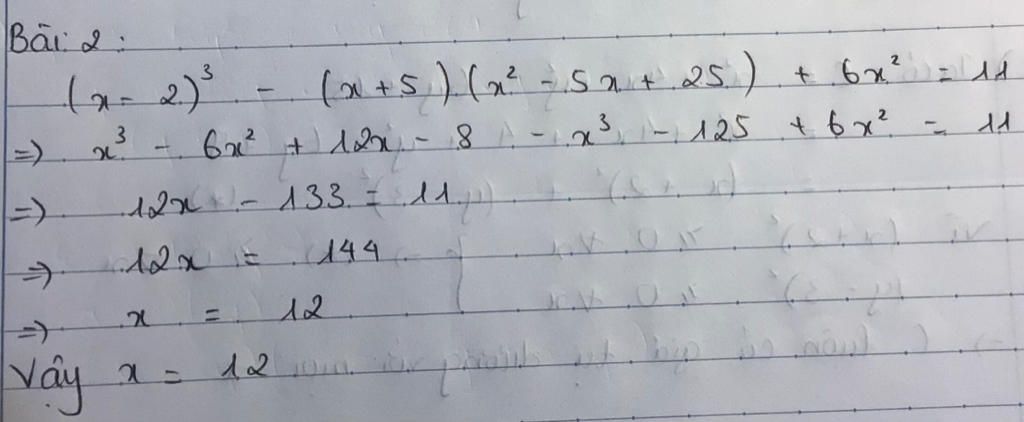 Bài 2 :
(x - 2)³ - (x + 5)(x² - 5x + 25) + 6x² = 11
=> x³ - 6x² + 12x - 8 - x³ - 125 + 6x² = 11
=> 12x - 133 = 11
=> 12x = 144
=> x = 12
Vậy x = 12